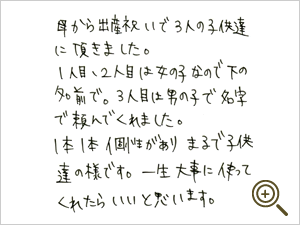 母から出産祝いで3人の子供達
に頂きました。
1人目、2人目は女の子なので下の
名前で。3人目は男の子で名字
で頼んでくれました。
1本1本個性があり まるで子供
達の様です。一生大事に使って
くれたらいいと思います。